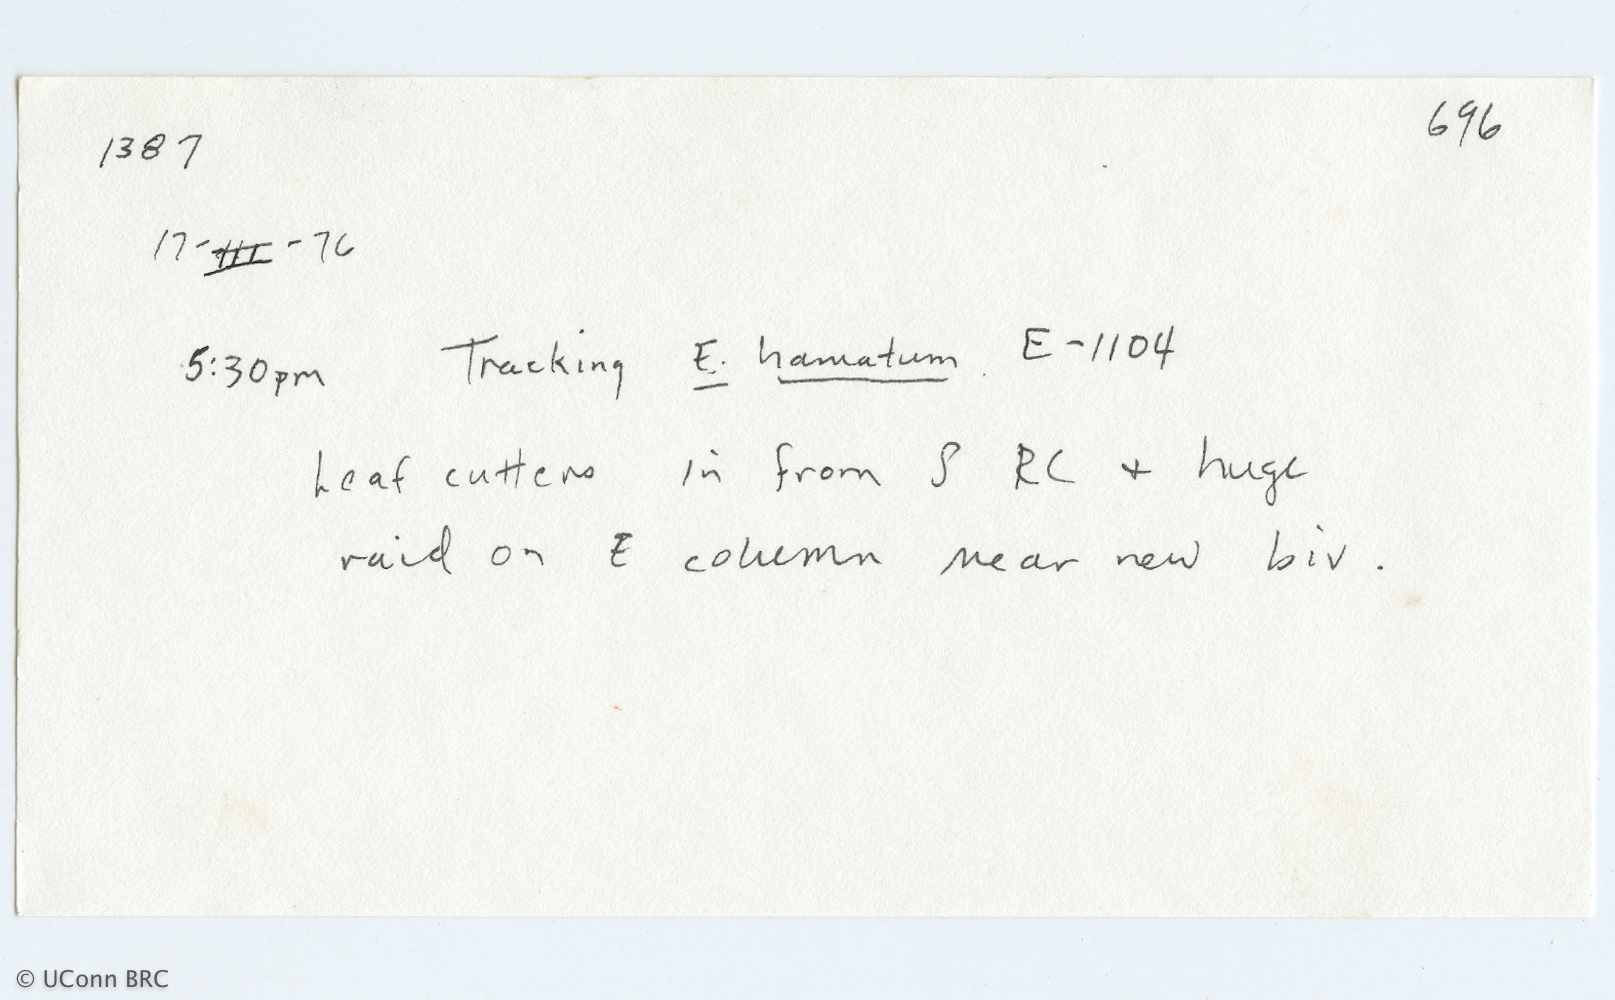 1387
696
17-III-76
5:30pm Tracking E. hamatum. E-1104
Leaf cutters in from S RC + huge
raid on E column near new biv.
© UConn BRC